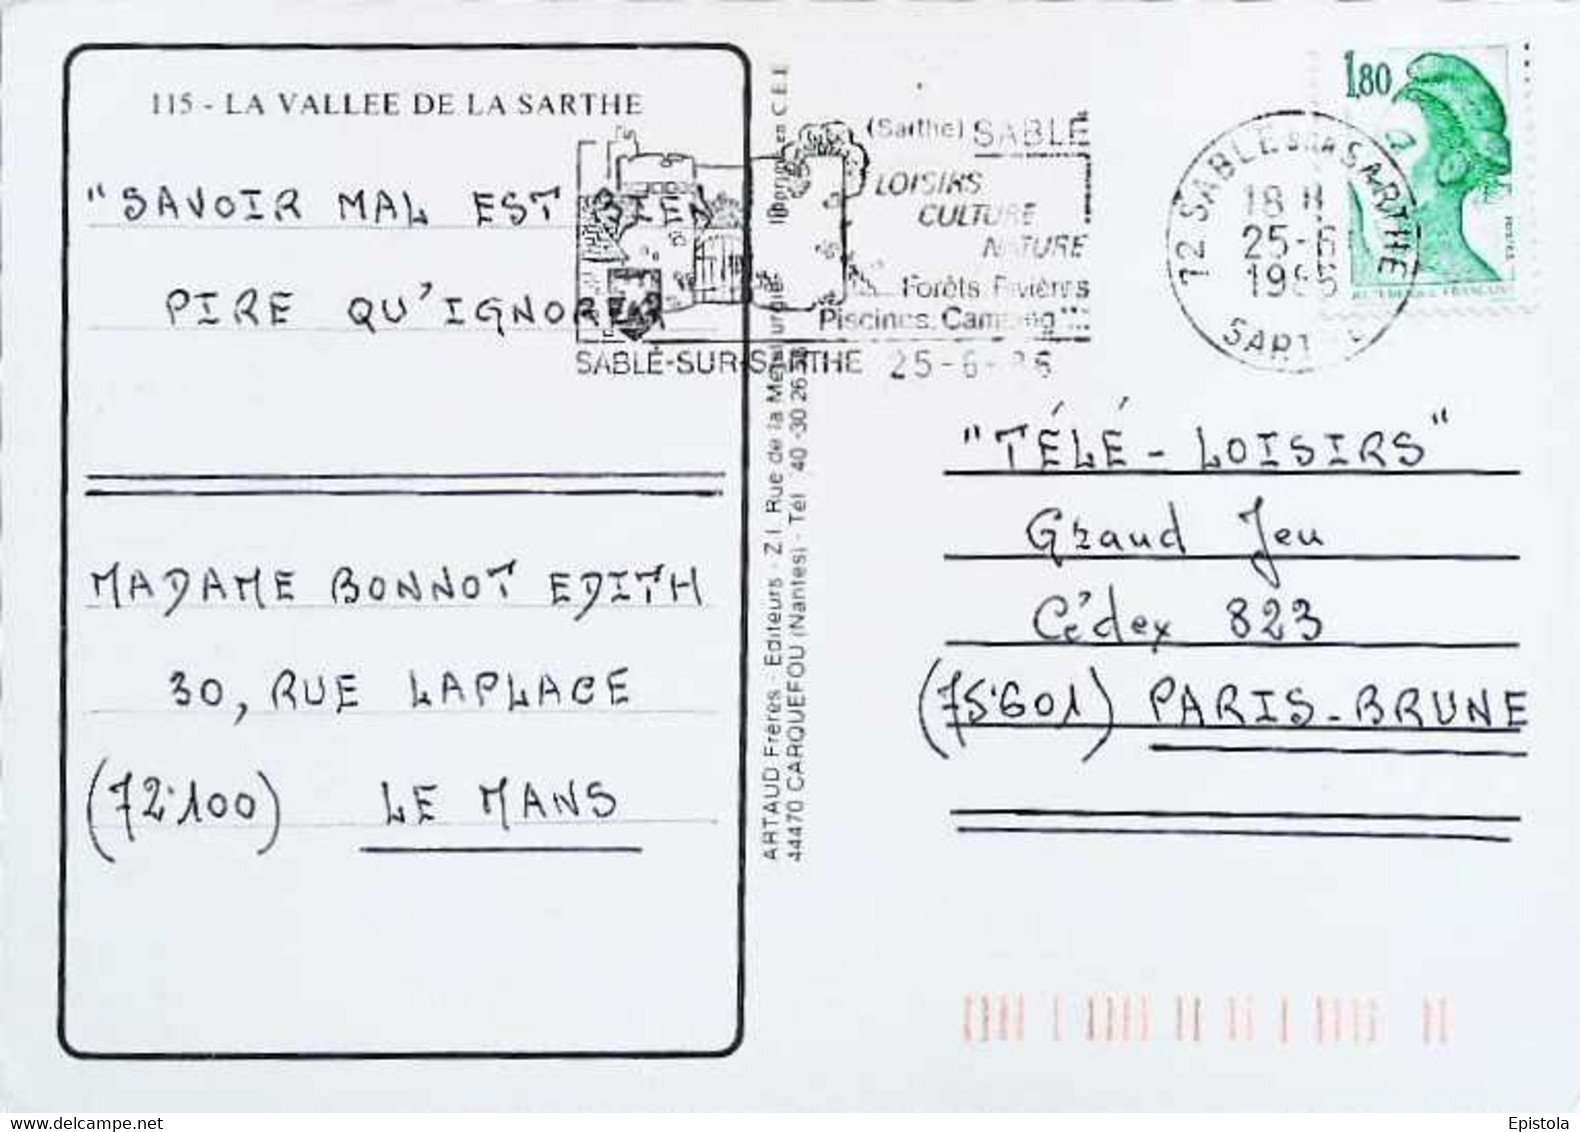 115 - LA VALLEE DE LA SARTHE
"SAVOIR MAL EST BIEN
PIRE QU'IGNORER
MADAME BONNOT EDITH
30, RUE LAPLACE
(72.100) LE MANS
ARTAUD Frères - Editeurs - Z.I. Rue de la Métallurgie Imprimé en C.E.E.
44470 CARQUEFOU (Nantes) - Tél 40 30 26
(Sarthe) SABLÉ
LOISIRS
CULTURE
NATURE
Forêts, Rivières
Piscines, Camping
SABLÉ-SUR-SARTHE 25-6-86
72 SABLE SUR SARTHE
18 H
25-6
1986
SARTHE
1,80
REPUBLIQUE FRANÇAISE
POSTES
"TÉLÉ - LOISIRS"
Grand Jeu
Cédex 823
(75.601) PARIS-BRUNE
Epistola